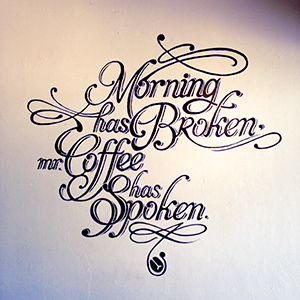 Morning
has Broken.
mr. Coffee
has
Spoken.